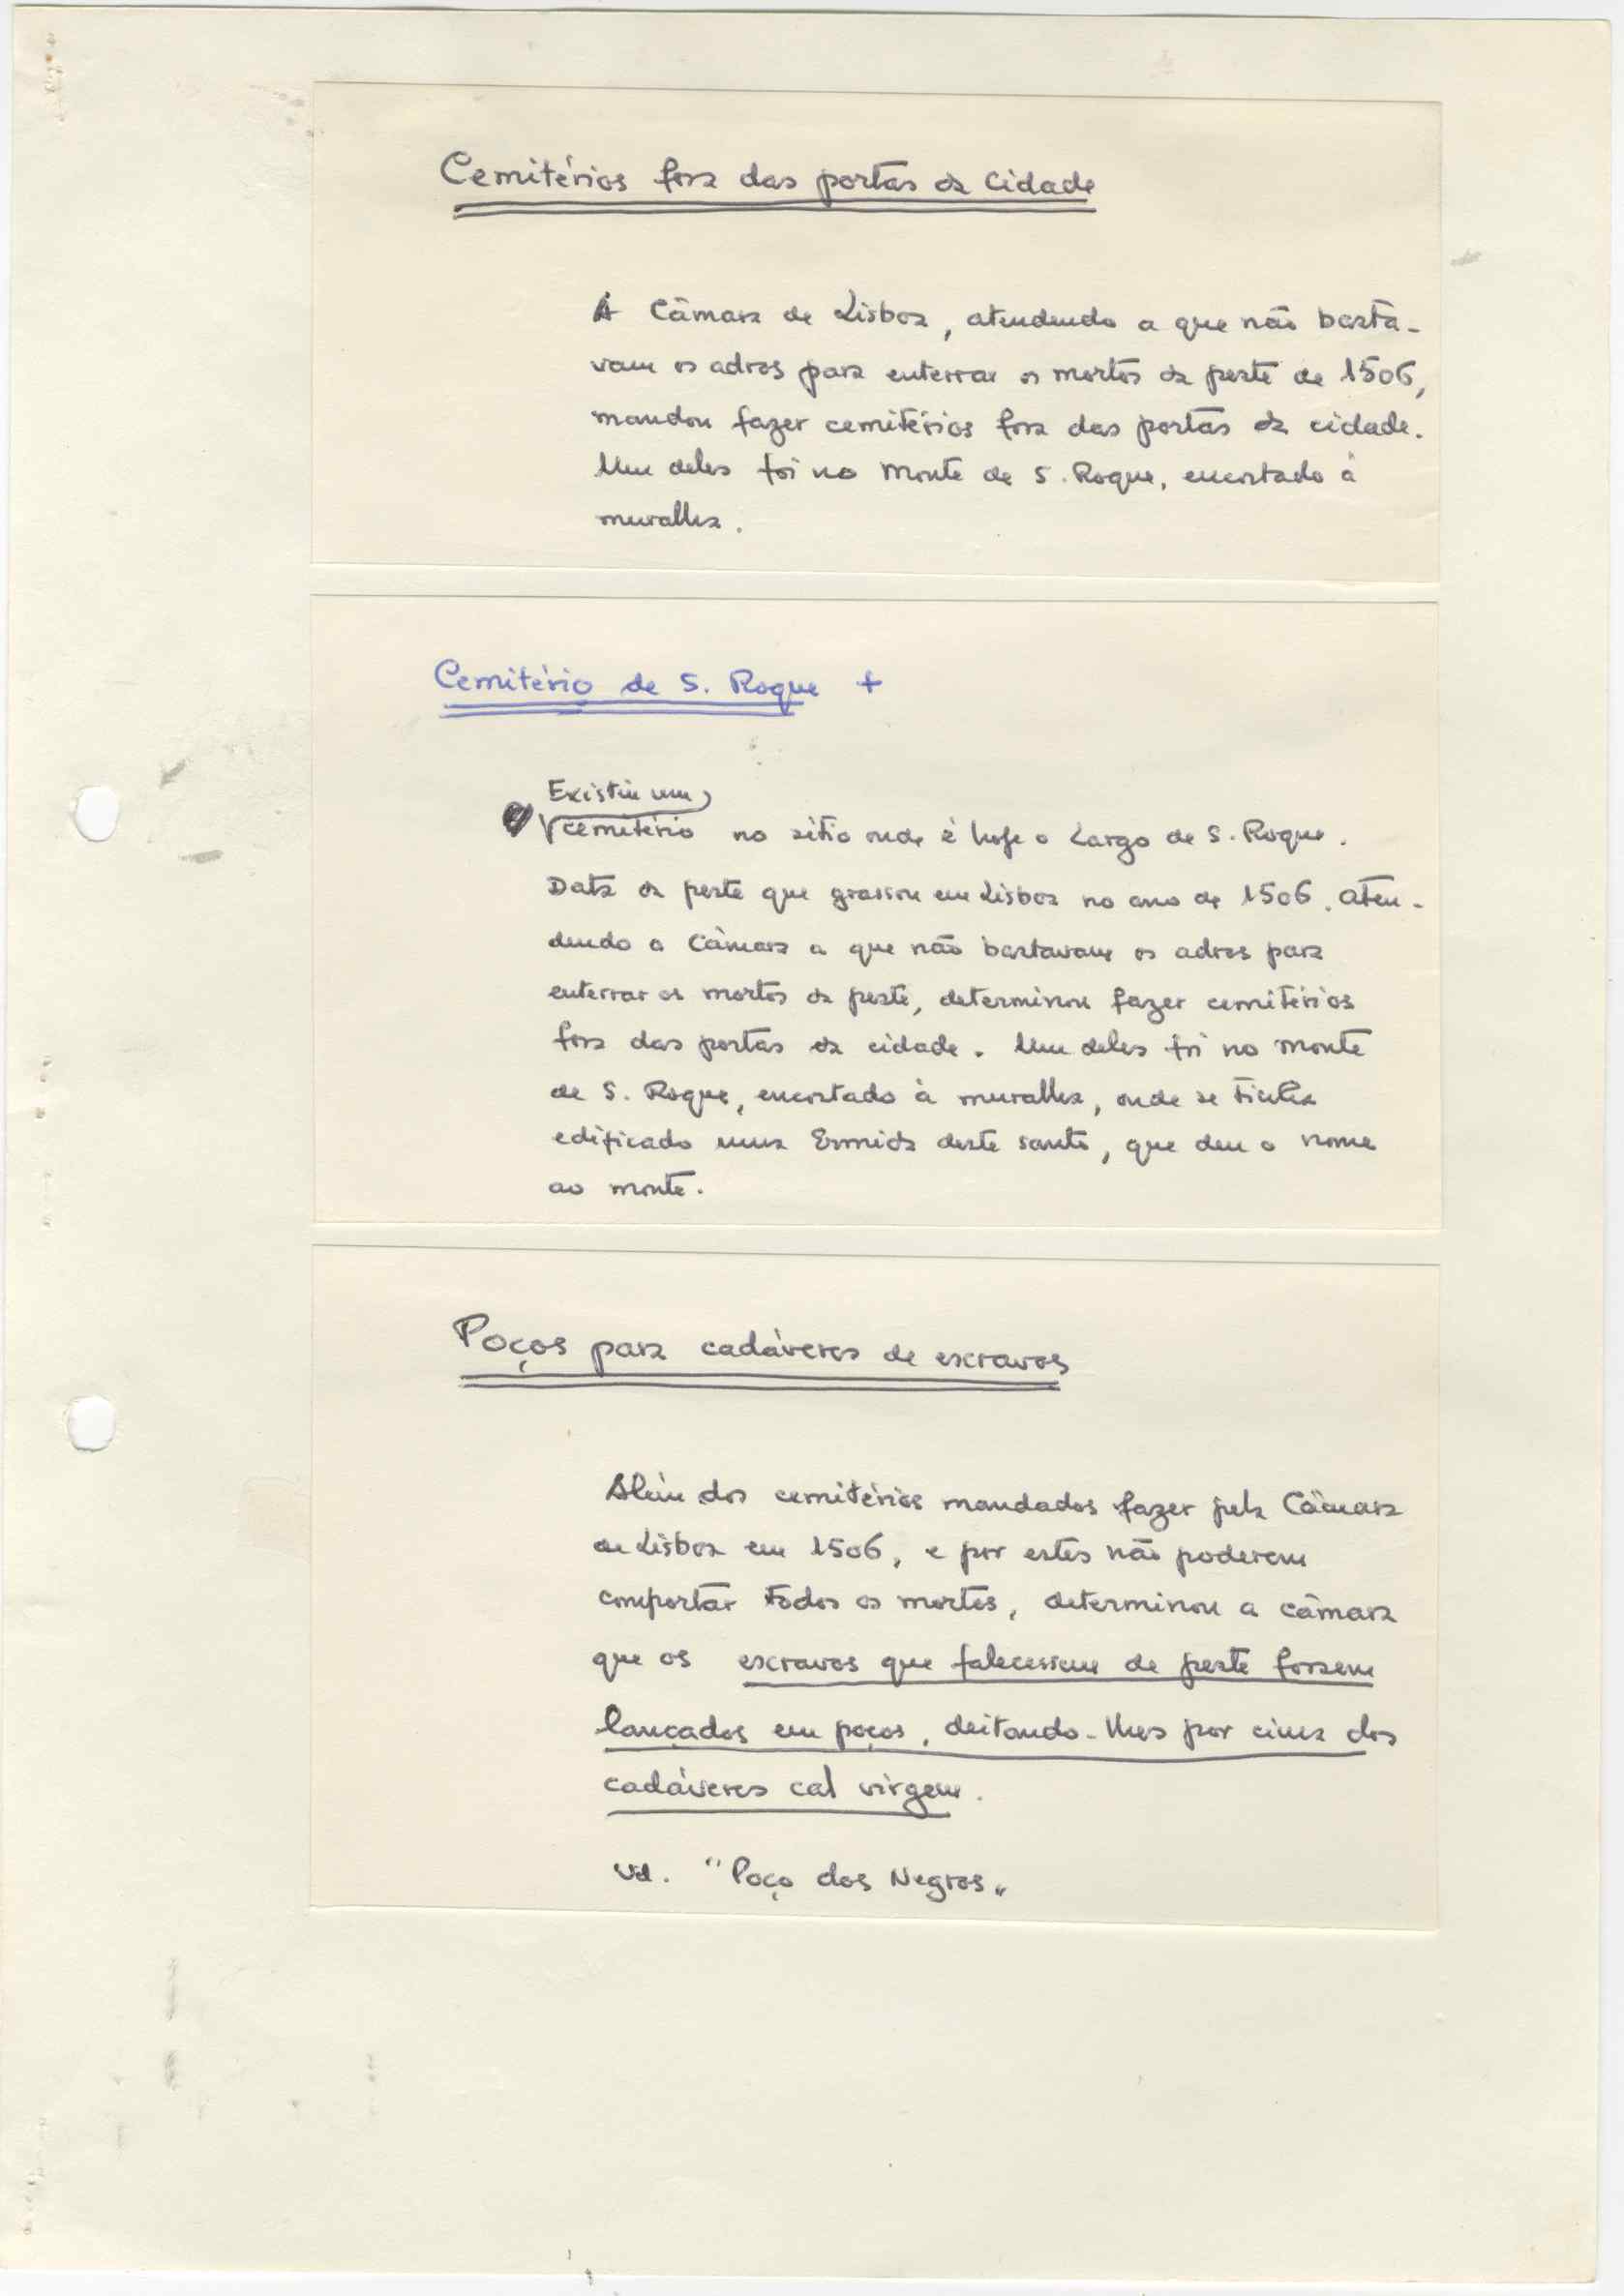 Cemitérios fora das portas da Cidade
A Câmara de Lisboa, atendendo a que não basta-
vam os adros para enterrar os mortos da peste de 1506,
mandou fazer cemitérios fora das portas da cidade.
Um deles foi no Monte de S. Roque, encostado à
muralha.
Cemitério de S. Roque +
Existiu um
cemitério no sítio onde é hoje o Largo de S. Roque.
Data da peste que grassou em Lisboa no ano de 1506. Aten-
dendo a Câmara a que não bastavam os adros para
enterrar os mortos da peste, determinou fazer cemitérios
fora das portas da cidade. Um deles foi no monte
de S. Roque, encostado à muralha, onde se tinha
edificado uma Ermida deste santo, que deu o nome
ao monte.
Poços para cadáveres de escravos
Além dos cemitérios mandados fazer pela Câmara
de Lisboa em 1506, e por estes não poderem
comportar todos os mortos, determinou a câmara
que os escravos que falecessem de peste fossem
lançados em poços, deitando-lhes por cima dos
cadáveres cal virgem.
Vid. "Poço dos Negros"